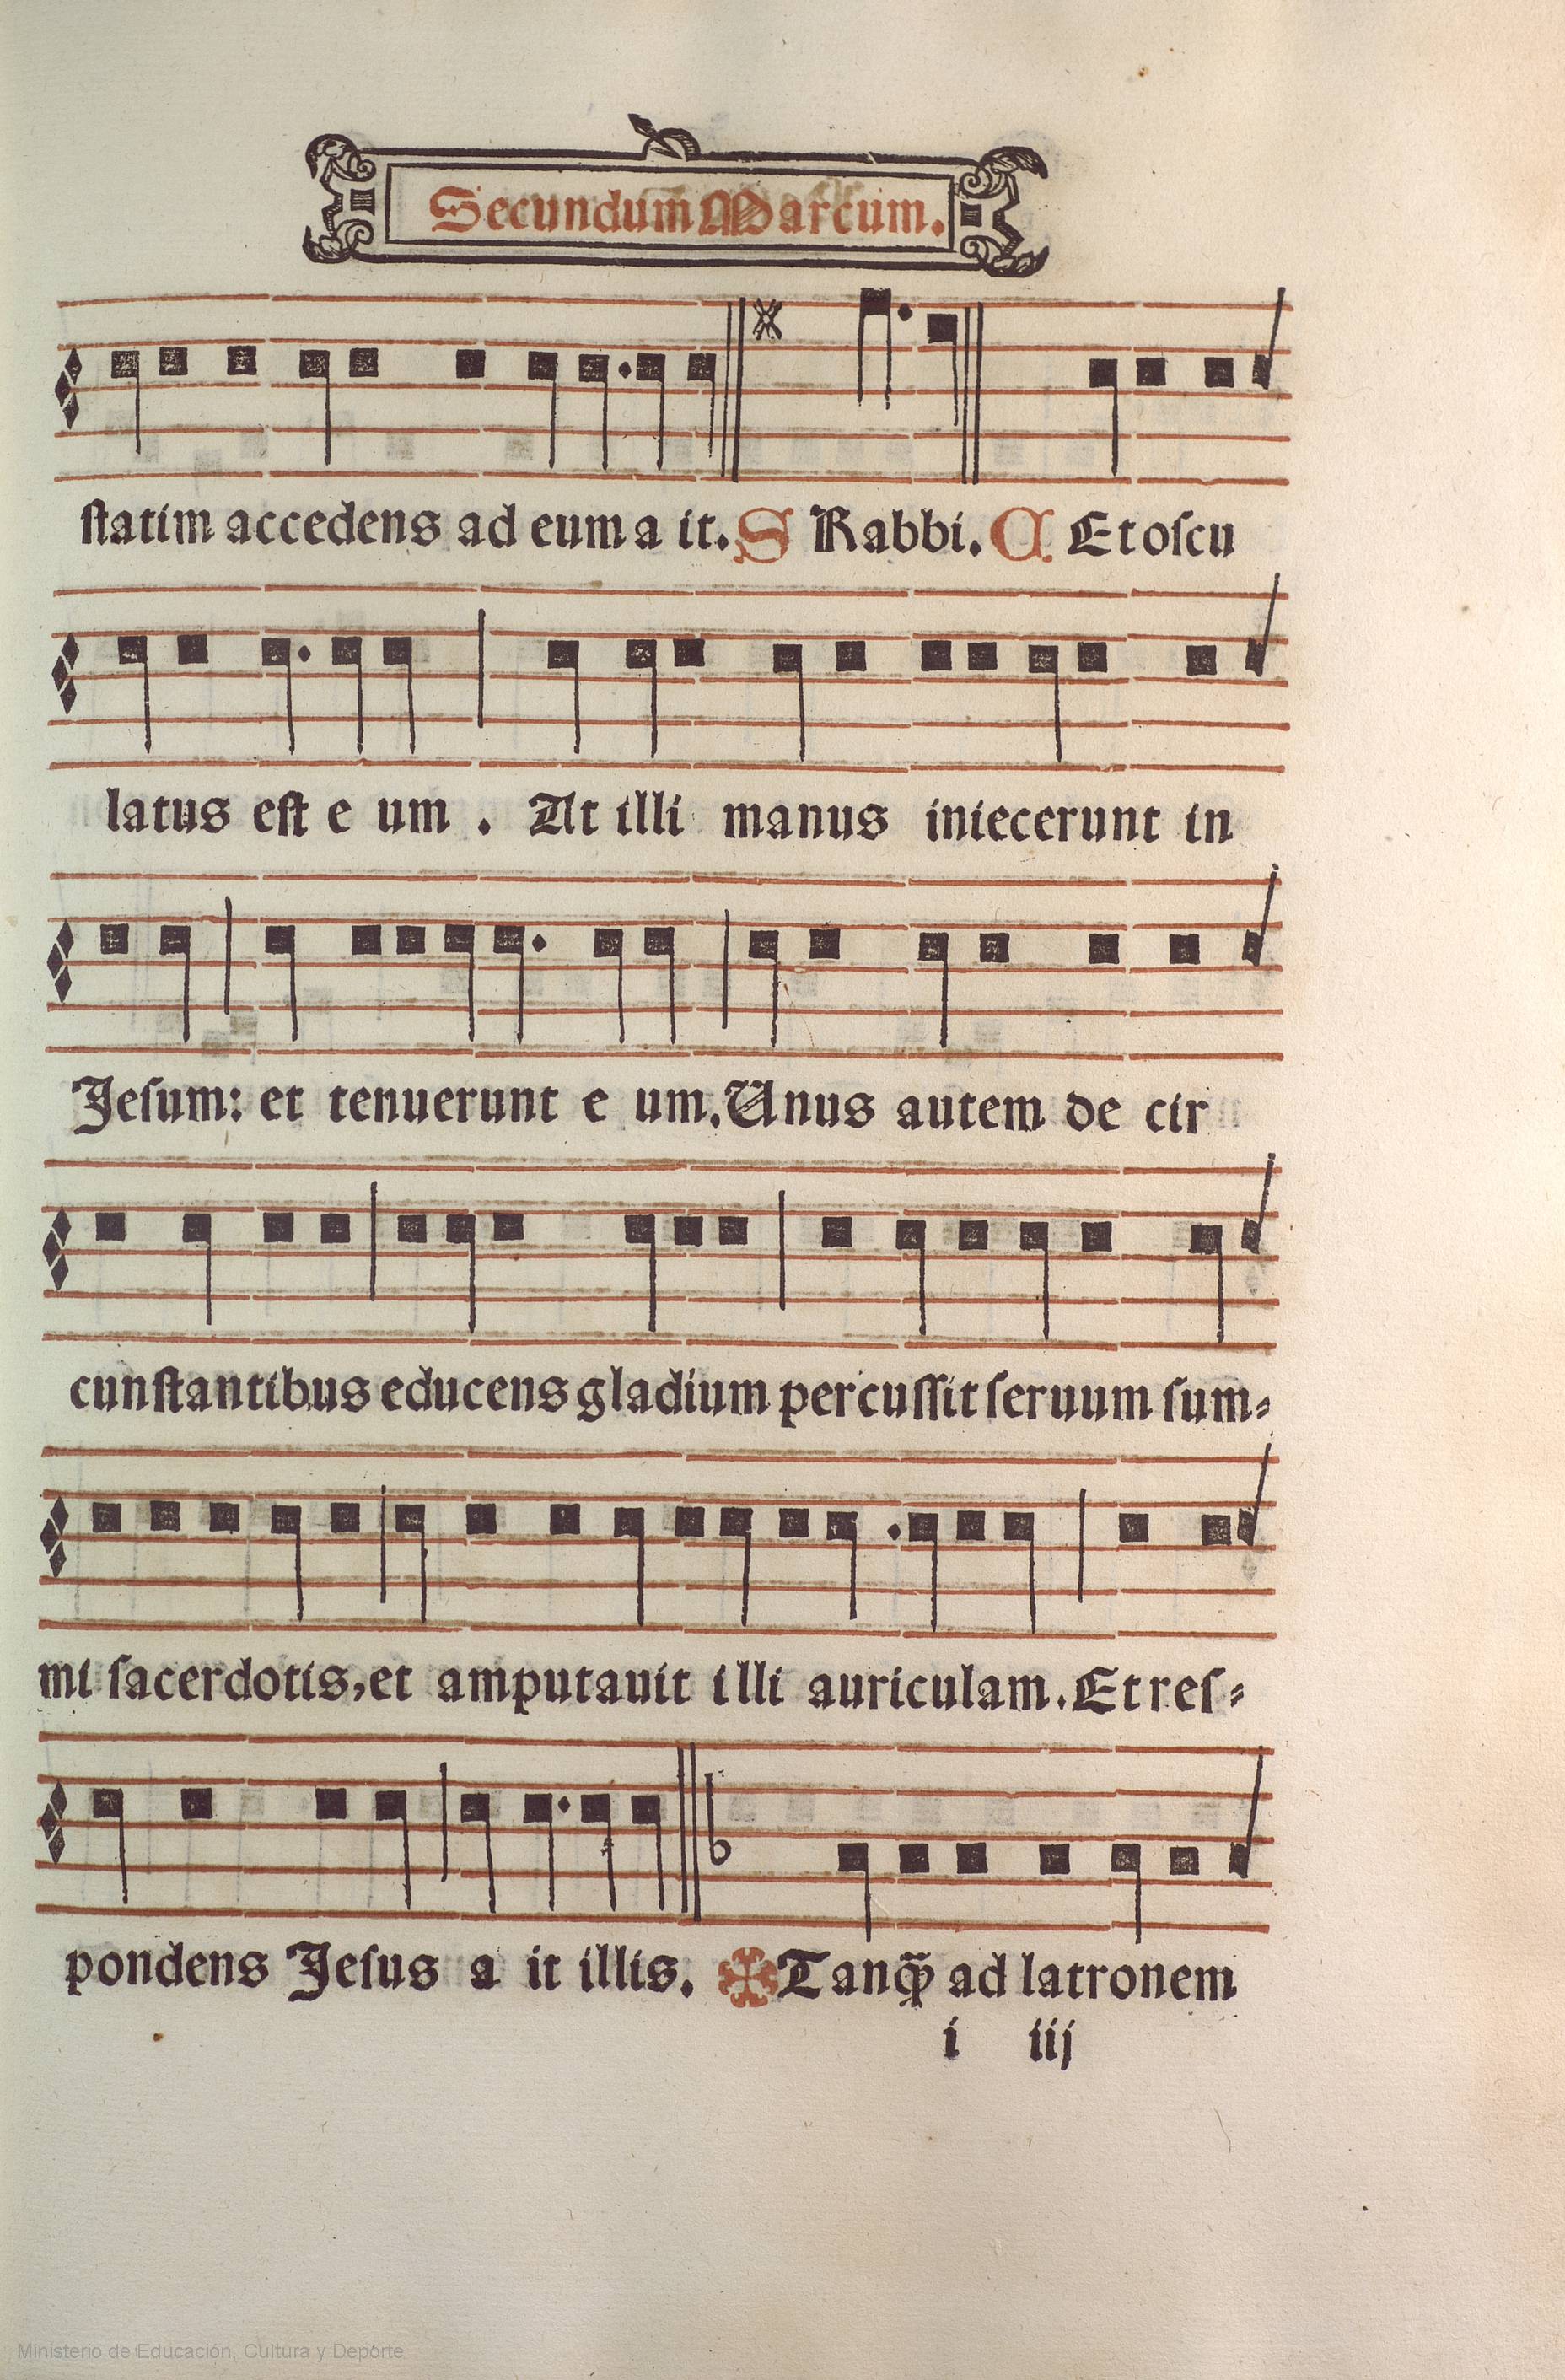 Secundum Marcum.
ſtatim accedens ad eum a it. S Rabbi. C Et oſcu
latus eſt e um . At illi manus iniecerunt in
Jeſum: et tenuerunt e um. Unus autem de cir
cunſtantibus educens gladium percuſſit ſeruum ſum⸗
mi ſacerdotis, et amputauit illi auriculam. Et reſ⸗
pondens Jeſus a it illis. ✠ Tanq̃ ad latronem
i iij
Ministerio de Educación, Cultura y Deporte